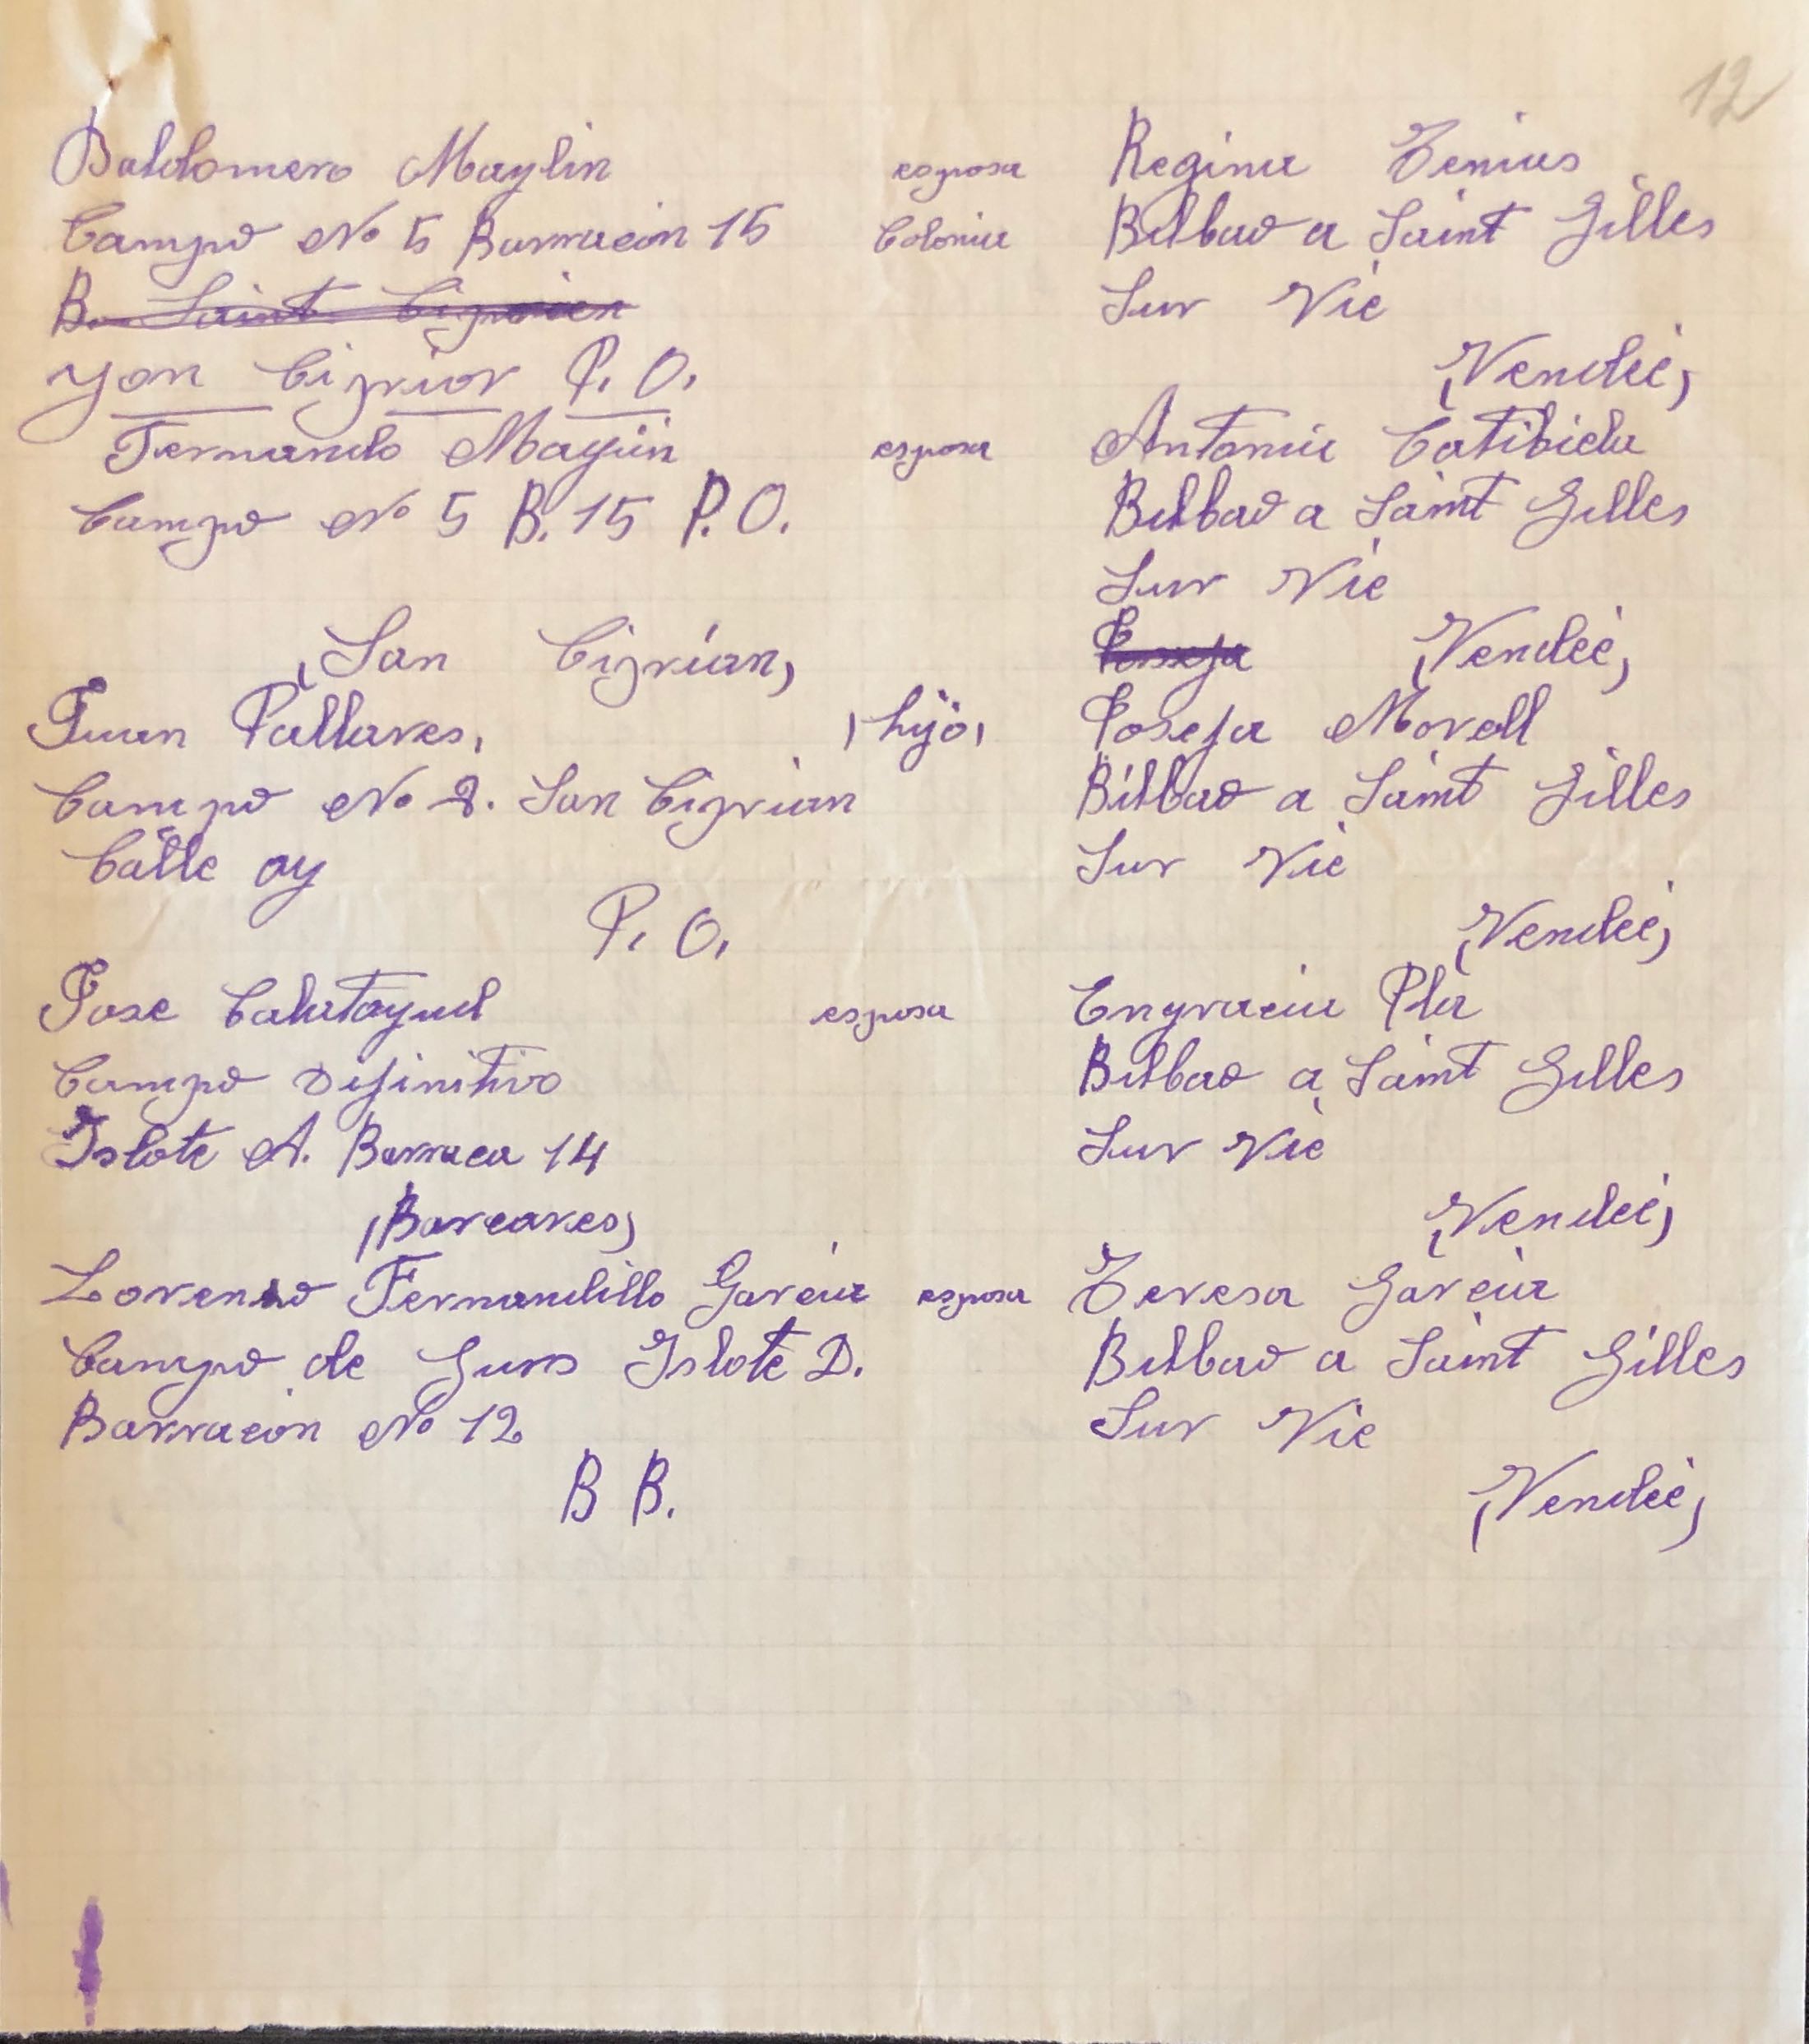 12
Baldomero Maylin esposa Regina Tenius
Campo No 5 Barracón 15 Colonia Bilbao a Saint Gilles
B. Saint Ciprien Sur Vie
yan Ciprior P. O. (Vendeé)
Fernando Mayiin esposa Antonia Catibiela
Campo No 5 B. 15 P. O. Bilbao a Saint Gilles
Sur Vie
(San Ciprían) Josefa (Vendeé)
Juan Pallares, (hijo) Josefa Morell
Campo No 2. San Ciprian Bilbao a Saint Gilles
Calle ay Sur Vie
P. O. (Vendeé)
Jose Calatayud esposa Engracia Pla
Campo Difinitivo Bilbao a Saint Gilles
Islote A. Barraca 14 Sur Vie
(Barcares) (Vendeé)
Lorenso Fernandillo García esposa Teresa García
Campo de Gurs Islote D. Bilbao a Saint Gilles
Barracón No 12 Sur Vie
B B. (Vendeé)